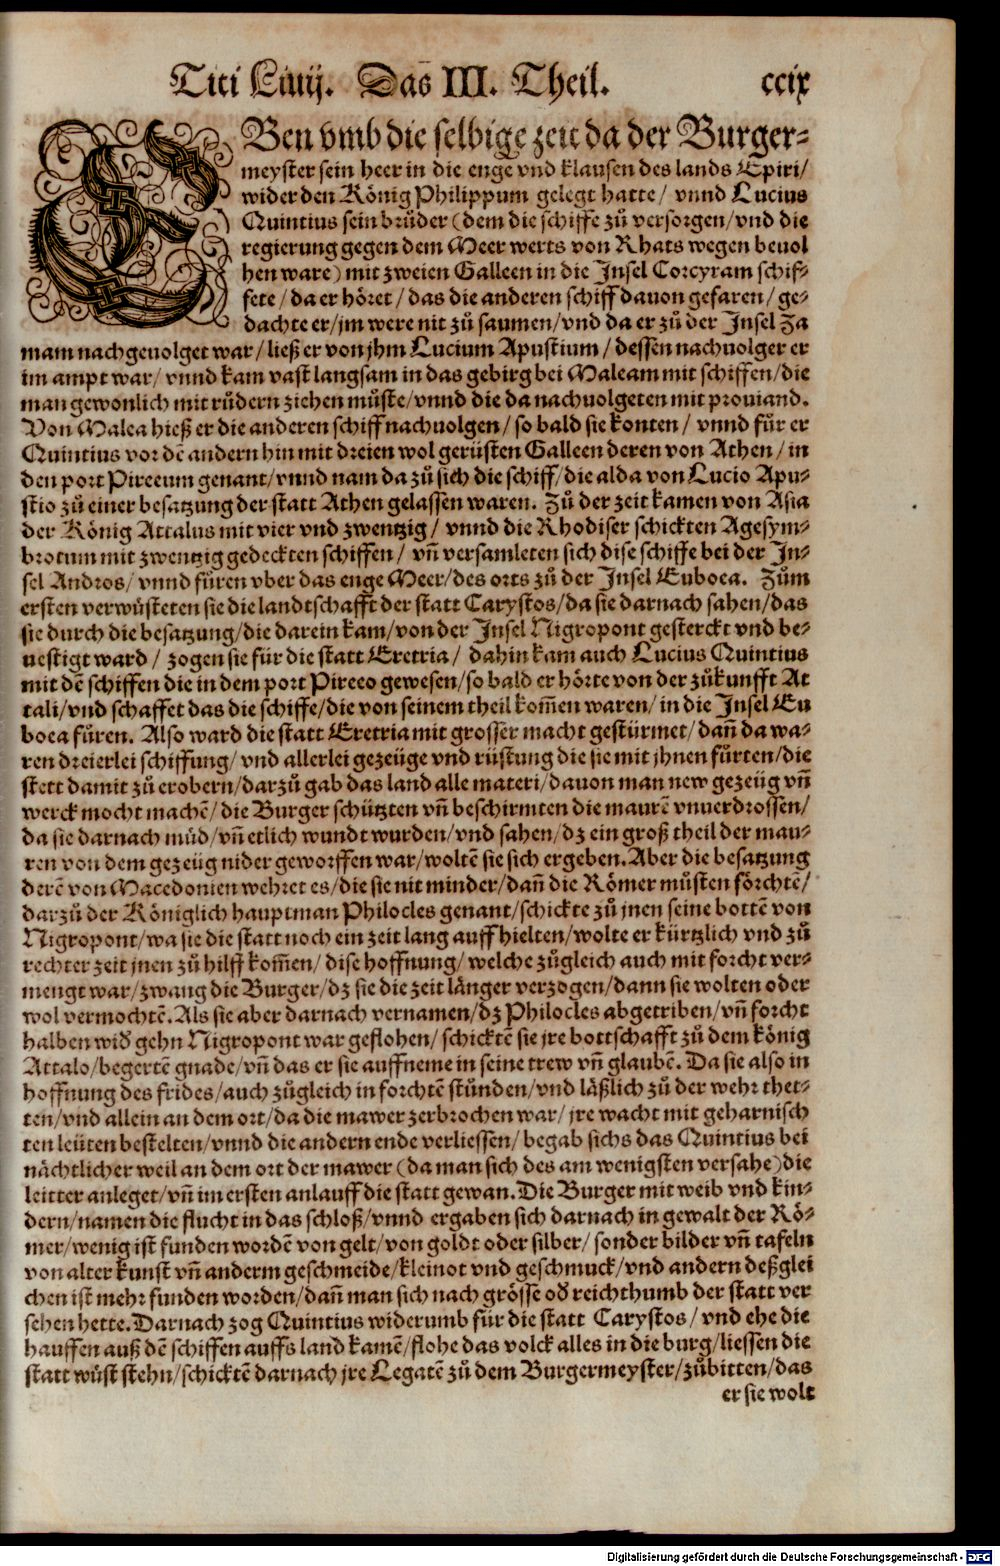 Titi Liuij. Das III. Theil. ccix
EBen vmb die selbige zeit da der Burger⸗
meyster sein heer in die enge vnd klausen des lands Epiri/
wider den König Philippum gelegt hatte/ vnnd Lucius
Quintius sein brůder (dem die schiffe zů versorgen/vnd die
regierung gegen dem Meer werts von Rhats wegen beuol
hen ware) mit zweien Galleen in die Insel Corcyram schif⸗
fete/da er höret/das die anderen schiff dauon gefaren/ge⸗
dachte er/jm were nit zů saumen/vnd da er zů der Insel Za
mam nachgeuolget war/ließ er von jhm Lucium Apustium/dessen nachuolger er
im ampt war/vnnd kam vast langsam in das gebirg bei Maleam mit schiffen/die
man gewonlich mit růdern ziehen můste/vnnd die da nachuolgeten mit prouiand.
Von Malea hieß er die anderen schiff nachuolgen/so bald sie konten/vnnd für er
Quintius vor dē andern hin mit dreien wol gerüsten Galleen deren von Athen/in
den port Pireeum genant/vnnd nam da zů sich die schiff/die alda von Lucio Apu⸗
stio zů einer besatzung der statt Athen gelassen waren. Zů der zeit kamen von Asia
der König Attalus mit vier vnd zwentzig/vnnd die Rhodiser schickten Agesym⸗
brotum mit zwentzig gedeckten schiffen/vn̄ versamleten sich dise schiffe bei der In⸗
sel Andros/vnnd fůren vber das enge Meer/des orts zů der Insel Euboea. Zům
ersten verwüsteten sie die landtschafft der statt Carystos/da sie darnach sahen/das
sie durch die besatzung/die darein kam/von der Insel Nigropont gesterckt vnd be⸗
uestigt ward/zogen sie für die statt Eretria/dahin kam auch Lucius Quintius
mit dē schiffen die in dem port Pireeo gewesen/so bald er hörte von der zůkunfft At
tali/vnd schaffet das die schiffe/die von seinem theil kom̄en waren/in die Insel Eu
boea fůren. Also ward die statt Eretria mit grosser macht gestürmet/dan̄ da wa⸗
ren dreierlei schiffung/vnd allerlei gezeüge vnd rüstung die sie mit jhnen fürten/die
stett damit zů erobern/darzů gab das land alle materi/dauon man new gezeüg vn̄
werck mocht machē/die Burger schützten vn̄ beschirmten die maurē vnuerdrossen/
da sie darnach müd/vn̄ etlich wundt wurden/vnd sahen/dz ein groß theil der mau⸗
ren von dem gezeüg nider geworffen war/woltē sie sich ergeben. Aber die besatzung
derē von Macedonien wehret es/die sie nit minder/dan̄ die Römer můsten förchtē/
darzů der Königlich hauptman Philocles genant/schickte zů jnen seine bottē von
Nigropont/wa sie die statt noch ein zeit lang auff hielten/wolte er kürtzlich vnd zů
rechter zeit jnen zů hilff kom̄en/dise hoffnung/welche zůgleich auch mit forcht ver⸗
mengt war/zwang die Burger/dz sie die zeit länger verzogen/dann sie wolten oder
wol vermochtē. Als sie aber darnach vernamen/dz Philocles abgetriben/vn̄ forcht
halben wid̄ gehn Nigropont war geflohen/schicktē sie jre bottschafft zů dem könig
Attalo/begertē gnade/vn̄ das er sie auffneme in seine trew vn̄ glaubē. Da sie also in
hoffnung des frides/auch zůgleich in forchtē stůnden/vnd läßlich zů der wehr thet⸗
ten/vnd allein an dem ort/da die mawer zerbrochen war/jre wacht mit geharnisch
ten leüten bestelten/vnnd die andern ende verliessen/begab sichs das Quintius bei
nächtlicher weil an dem ort der mawer (da man sich des am wenigsten versahe) die
leitter anleget/vn̄ im ersten anlauff die statt gewan. Die Burger mit weib vnd kin⸗
dern/namen die flucht in das schloß/vnnd ergaben sich darnach in gewalt der Rö⸗
mer/wenig ist funden wordē von gelt/von goldt oder silber/sonder bilder vn̄ tafeln
von alter kunst vn̄ anderm geschmeide/kleinot vnd geschmuck/vnd andern deßglei
chen ist mehr funden worden/dan̄ man sich nach grösse od̄ reichthumb der statt ver
sehen hette. Darnach zog Quintius widerumb für die statt Carystos/vnd ehe die
hauffen auß dē schiffen auffs land kamē/flohe das volck alles in die burg/liessen die
statt wüst stehn/schicktē darnach jre Legatē zů dem Burgermeyster/zůbitten/das
er sie wolt
Digitalisierung gefördert durch die Deutsche Forschungsgemeinschaft - DFG